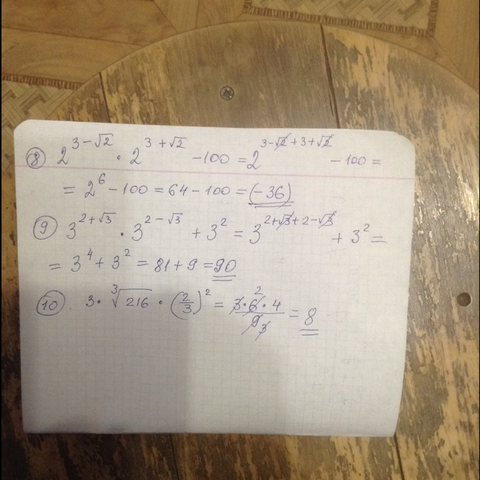 ⑧ 2^(3-√2) · 2^(3+√2) - 100 = 2^(3-√2+3+√2) - 100 =
= 2^6 - 100 = 64 - 100 = (-36)
⑨ 3^(2+√3) · 3^(2-√3) + 3^2 = 3^(2+√3+2-√3) + 3^2 =
= 3^4 + 3^2 = 81 + 9 = 90
⑩ 3 · ∛216 · (2/3)^2 = (3·6·4)/9 = 8